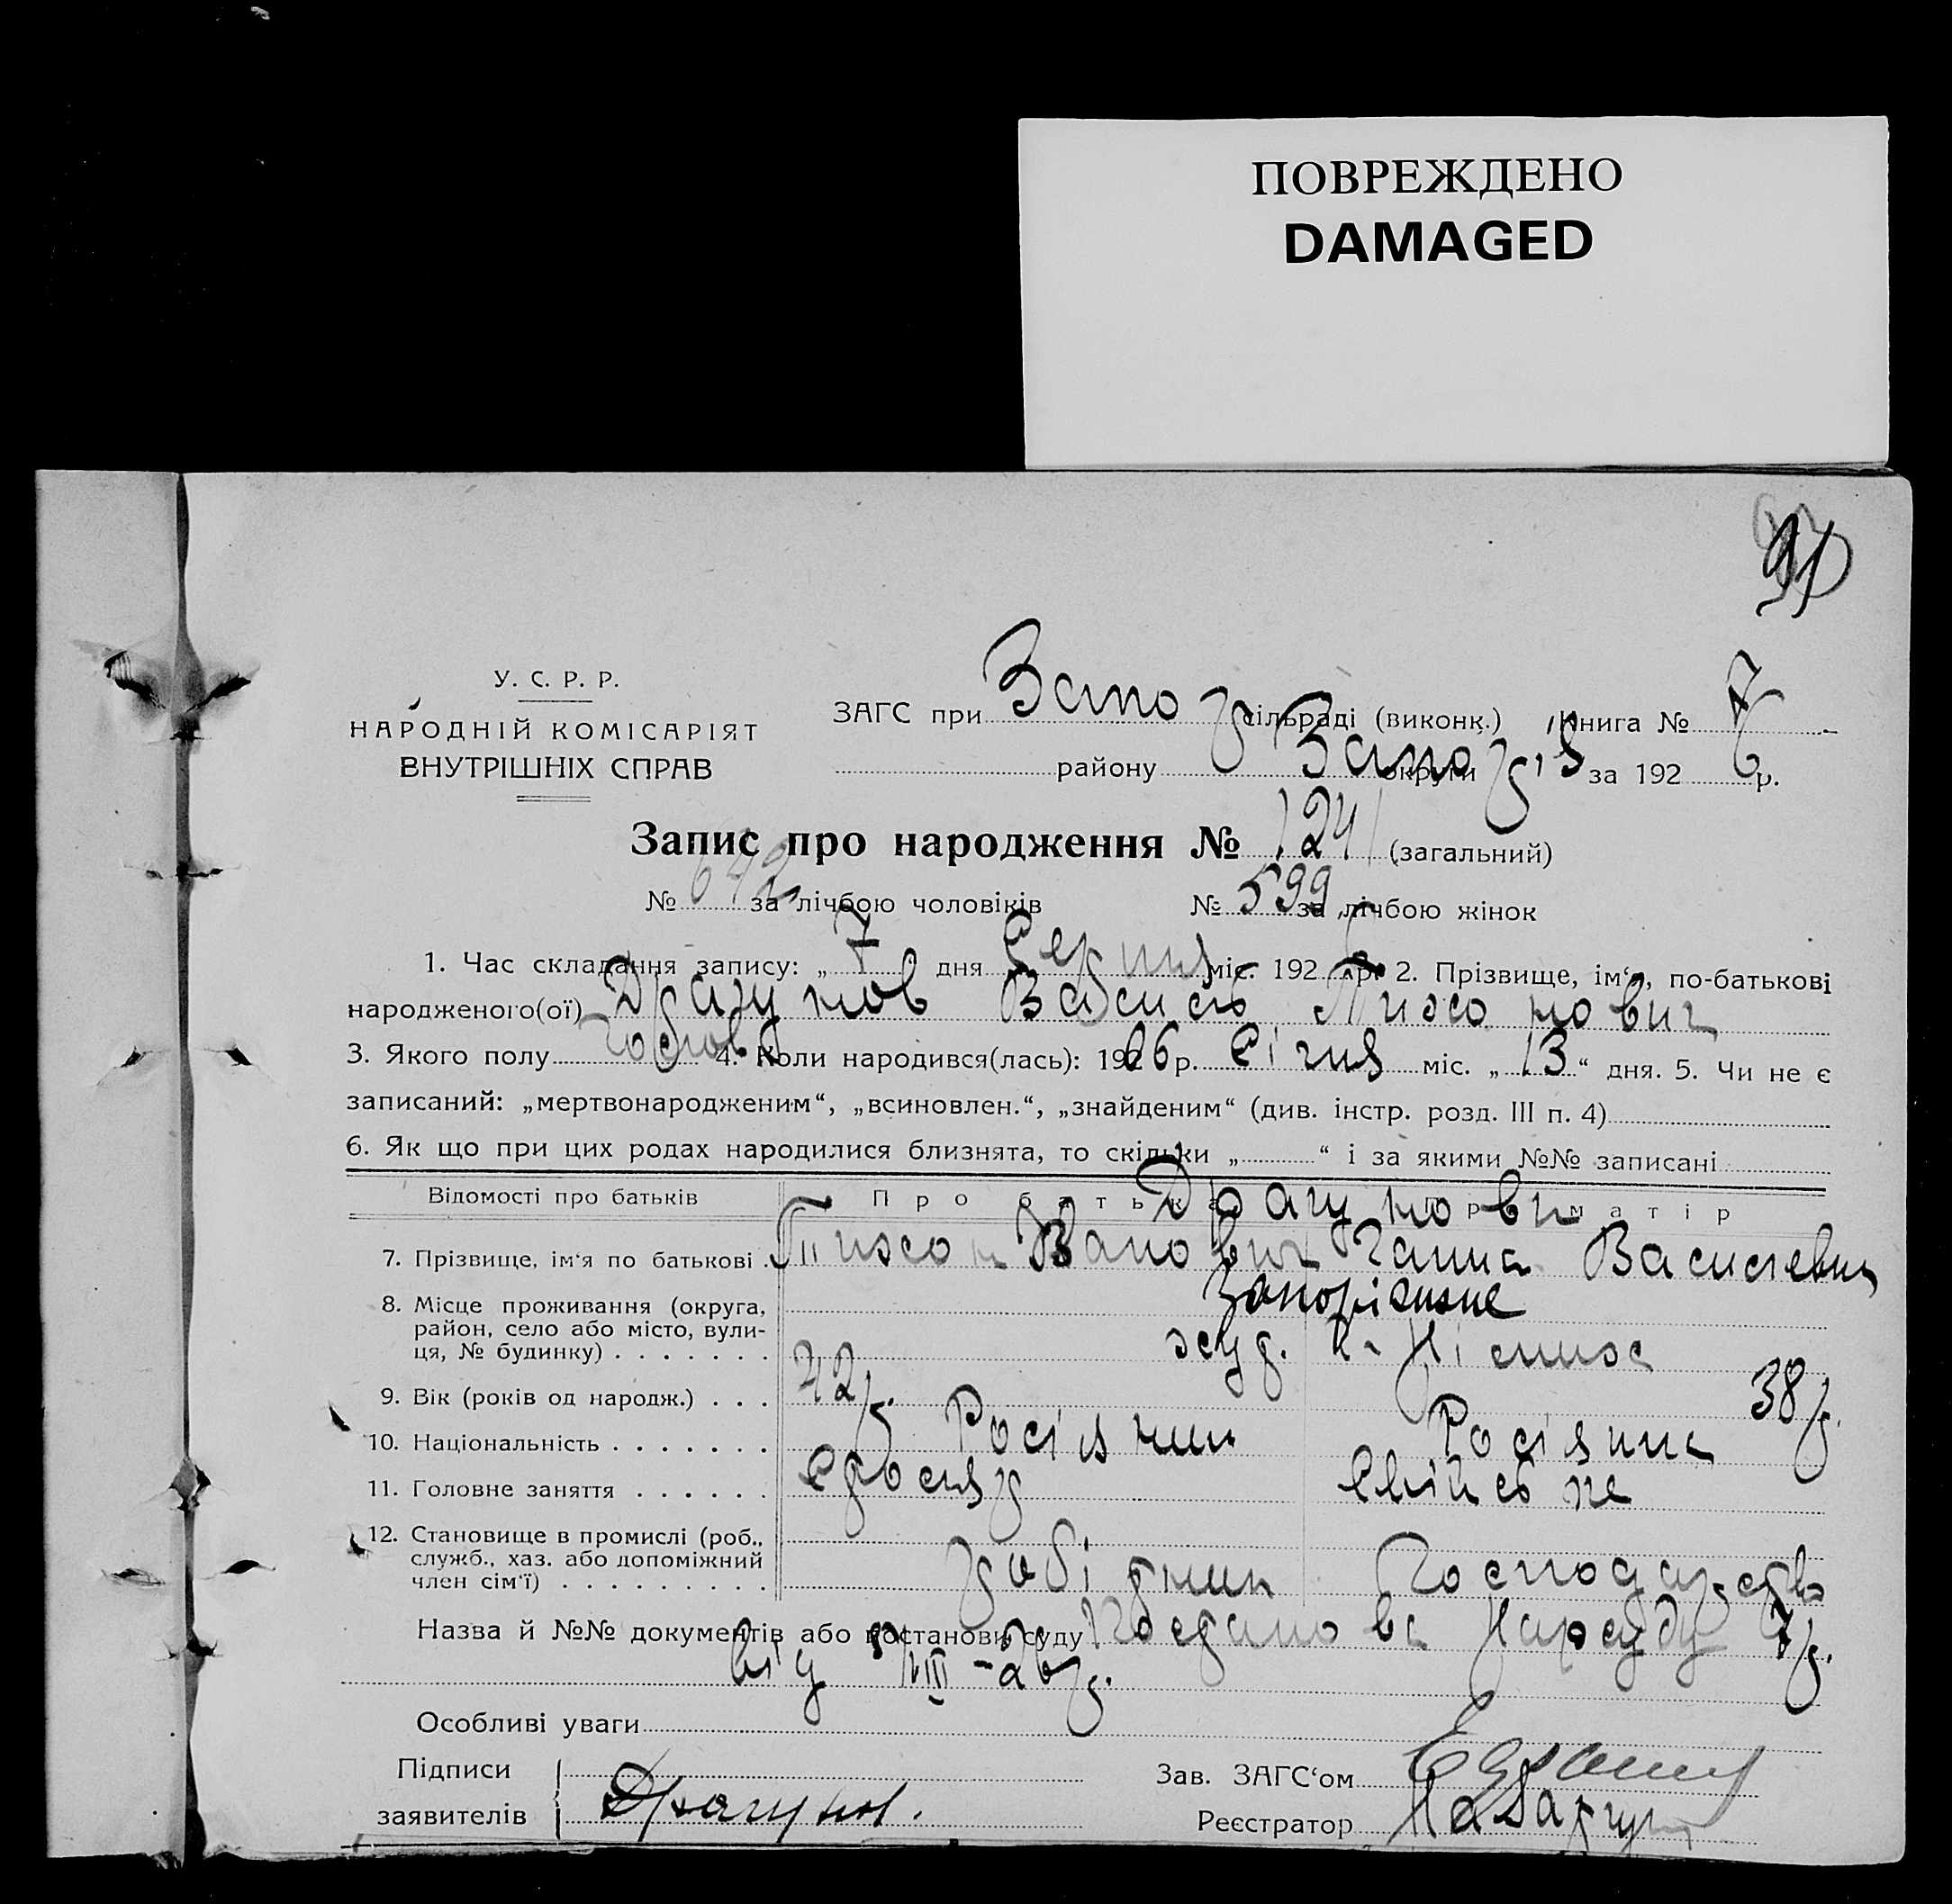 ПОВРЕЖДЕНО
DAMAGED
91
У. С. Р. Р.
НАРОДНІЙ КОМІСАРІЯТ
ВНУТРІШНІХ СПРАВ
ЗАГС при Запо сільраді (виконк.) Книга № 7
району Запо округи за 192 6 р.
Запис про народження № 1241 (загальний)
№ 642 за лічбою чоловіків № 599 за лічбою жінок
1. Час складання запису: „ 7 дня Серпня міс. 192 6 р. 2. Прізвище, ім‘я, по-батькові
народженого(ої) Драгунов Василь Тихонович
3. Якого полу 4. Коли народився(лась): 1926 р. Січня міс. „ 13 “ дня. 5. Чи не є
записаний: „мертвонародженим“, „всиновлен.“, „знайденим“ (див. інстр. розд. III п. 4)
6. Як що при цих родах народилися близнята, то скільки „ “ і за якими №№ записані
Відомості про батьків Про батька Про матір
Драгунови
7. Прізвище, ім‘я по батькові Тихон Іванович Ганна Василевна
8. Місце проживання (округа,
район, село або місто, вули-
ця, № будинку)
Запоріжжє
9. Вік (років од народж.) 42 р. 38 р.
10. Національність Росіянин Росіянка
11. Головне заняття Свійське
12. Становище в промислі (роб.,
служб., хаз. або допоміжний
член сім‘ї)
робітник Господарство
Назва й №№ документів або постанови суду Нарсуду 7 р.
від VIII-26 р.
Особливі уваги
Підписи
заявителів
Драгунов.
Зав. ЗАГС‘ом
Реєстратор